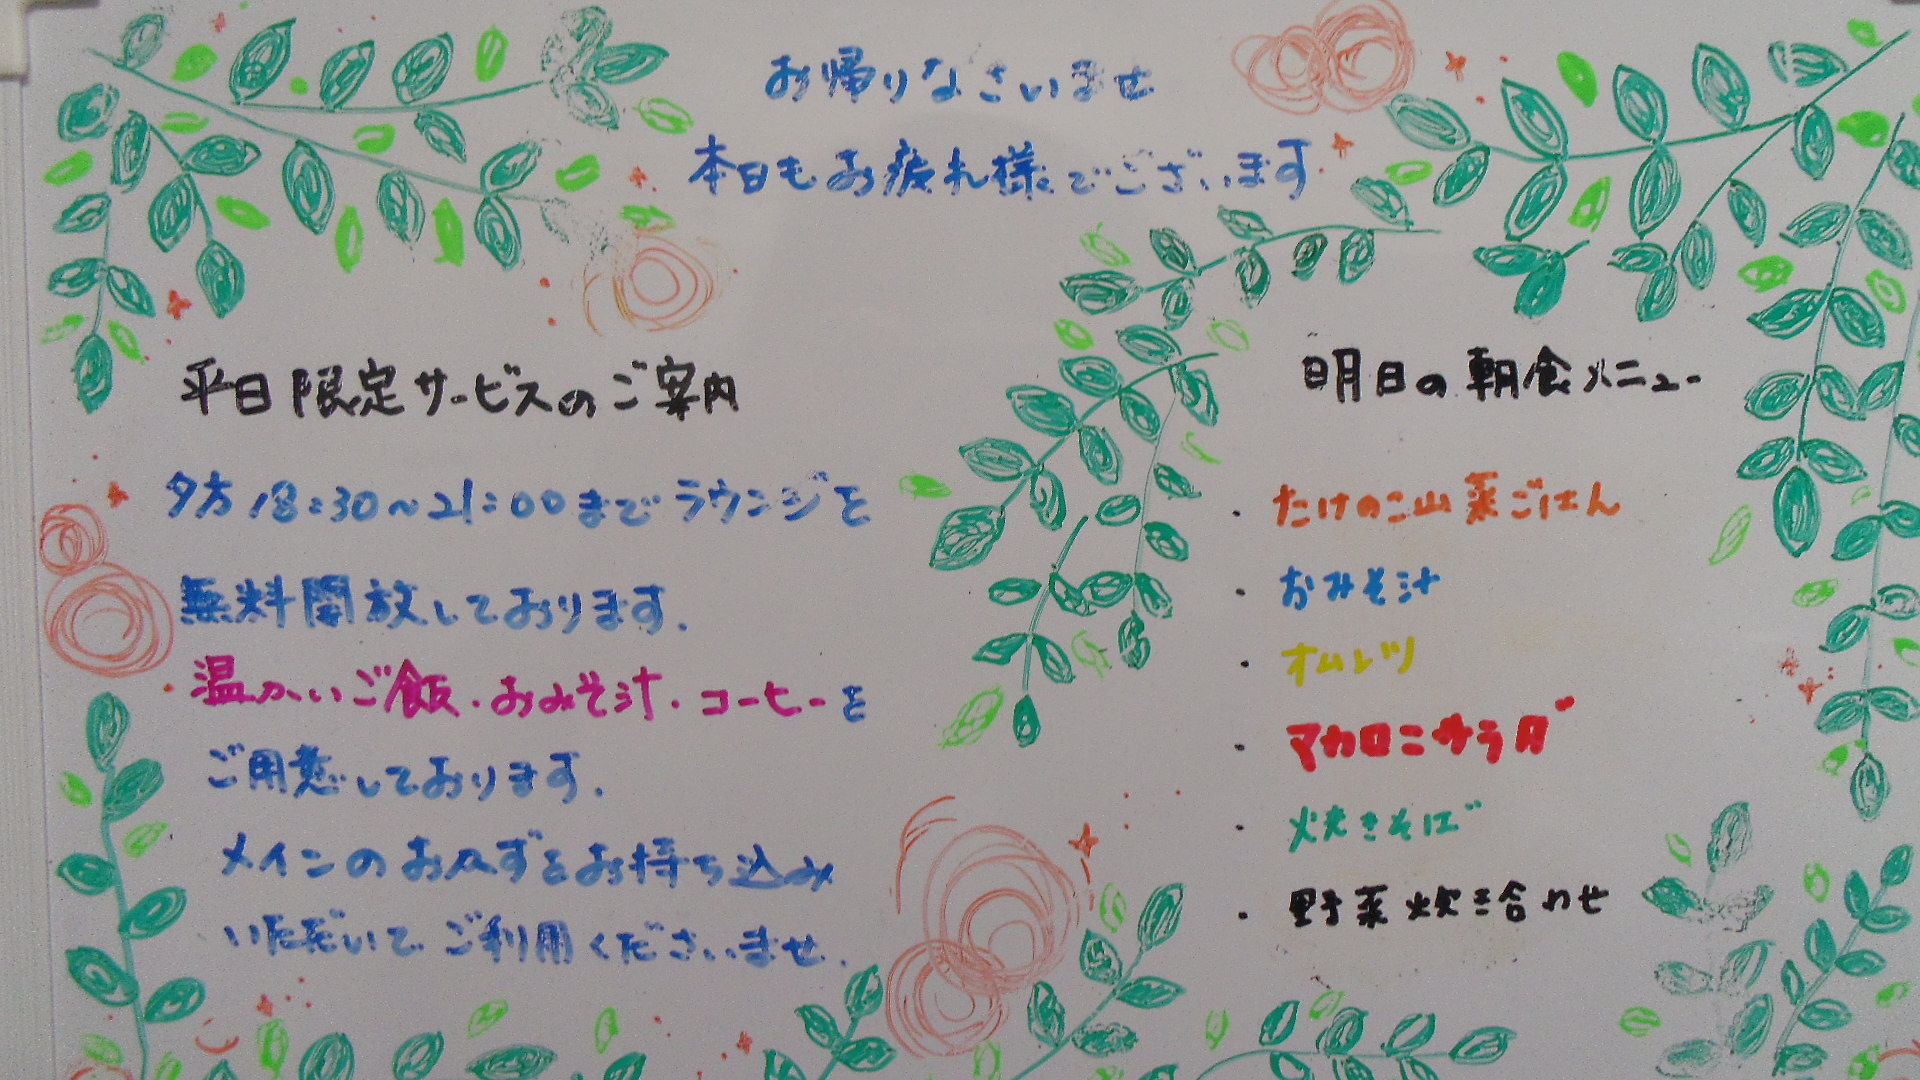 お帰りなさいませ
本日もお疲れ様でございます
平日限定サービスのご案内
夕方18:30~21:00までラウンジを
無料開放しております.
温かいご飯・おみそ汁・コーヒーを
ご用意しております.
メインのおかずをお持ち込み
いただいてご利用くださいませ.
明日の朝食メニュー
・たけのこ山菜ごはん
・おみそ汁
・オムレツ
・マカロニサラダ
・焼きそば
・野菜炊き合わせ